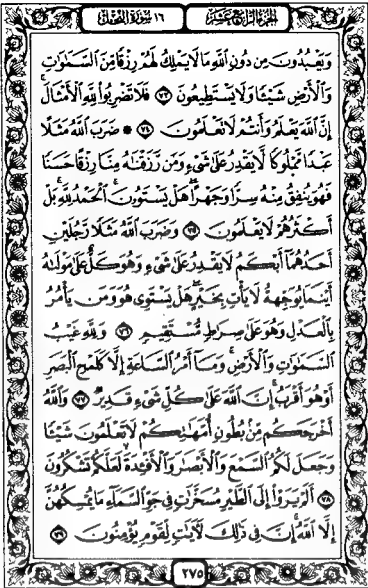 الجزء الرابع عشر
١٦ سورة النحل
وَيَعْبُدُونَ مِن دُونِ ٱللَّهِ مَا لَا يَمْلِكُ لَهُمْ رِزْقًا مِّنَ ٱلسَّمَٰوَٰتِ
وَٱلْأَرْضِ شَيْـًٔا وَلَا يَسْتَطِيعُونَ ٧٣ فَلَا تَضْرِبُوا۟ لِلَّهِ ٱلْأَمْثَالَ ۚ
إِنَّ ٱللَّهَ يَعْلَمُ وَأَنتُمْ لَا تَعْلَمُونَ ٧٤ ۞ ضَرَبَ ٱللَّهُ مَثَلًا
عَبْدًا مَّمْلُوكًا لَّا يَقْدِرُ عَلَىٰ شَىْءٍ وَمَن رَّزَقْنَٰهُ مِنَّا رِزْقًا حَسَنًا
فَهُوَ يُنفِقُ مِنْهُ سِرًّا وَجَهْرًا ۖ هَلْ يَسْتَوُۥنَ ۚ ٱلْحَمْدُ لِلَّهِ ۚ بَلْ
أَكْثَرُهُمْ لَا يَعْلَمُونَ ٧٥ وَضَرَبَ ٱللَّهُ مَثَلًا رَّجُلَيْنِ
أَحَدُهُمَآ أَبْكَمُ لَا يَقْدِرُ عَلَىٰ شَىْءٍ وَهُوَ كَلٌّ عَلَىٰ مَوْلَىٰهُ
أَيْنَمَا يُوَجِّههُّ لَا يَأْتِ بِخَيْرٍ ۖ هَلْ يَسْتَوِى هُوَ وَمَن يَأْمُرُ
بِٱلْعَدْلِ ۙ وَهُوَ عَلَىٰ صِرَٰطٍ مُّسْتَقِيمٍ ٧٦ وَلِلَّهِ غَيْبُ
ٱلسَّمَٰوَٰتِ وَٱلْأَرْضِ ۚ وَمَآ أَمْرُ ٱلسَّاعَةِ إِلَّا كَلَمْحِ ٱلْبَصَرِ
أَوْ هُوَ أَقْرَبُ ۚ إِنَّ ٱللَّهَ عَلَىٰ كُلِّ شَىْءٍ قَدِيرٌ ٧٧ وَٱللَّهُ
أَخْرَجَكُم مِّنۢ بُطُونِ أُمَّهَٰتِكُمْ لَا تَعْلَمُونَ شَيْـًٔا
وَجَعَلَ لَكُمُ ٱلسَّمْعَ وَٱلْأَبْصَٰرَ وَٱلْأَفْـِٔدَةَ ۙ لَعَلَّكُمْ تَشْكُرُونَ
٧٨ أَلَمْ يَرَوْا۟ إِلَى ٱلطَّيْرِ مُسَخَّرَٰتٍ فِى جَوِّ ٱلسَّمَآءِ مَا يُمْسِكُهُنَّ
إِلَّا ٱللَّهُ ۗ إِنَّ فِى ذَٰلِكَ لَـَٔايَٰتٍ لِّقَوْمٍ يُؤْمِنُونَ ٧٩
٢٧٥